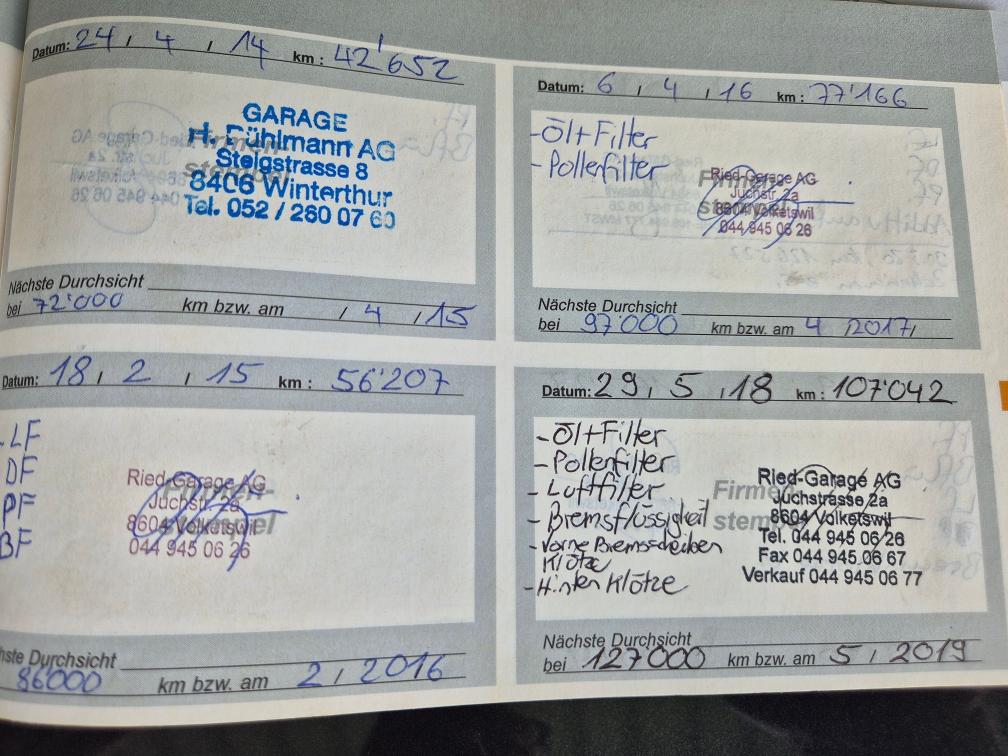 Datum: 24 / 4 / 14 km: 42'652
GARAGE
H. Fühlmann AG
Steigstrasse 8
8406 Winterthur
Tel. 052 / 280 07 60
Nächste Durchsicht
bei 72'000 km bzw. am / 4 / 15
Datum: 18 / 2 / 15 km: 56'207
LF
DF
PF
BF
Ried-Garage AG
Juchstr. 2a
8604 Volketswil
044 945 06 26
hste Durchsicht
86000 km bzw. am 2 / 2016
Datum: 6 / 4 / 16 km: 77'166
- Öl+Filter
- Pollenfilter
Firmen-
stempel
Ried-Garage AG
Juchstr. 2a
8604 Volketswil
044 945 06 26
Nächste Durchsicht
bei 97'000 km bzw. am 4 / 2017 /
Datum: 29 / 5 / 18 km: 107'042
- Öl+Filter
- Pollenfilter
- Luftfilter
- Bremsflüssigkeit
- Vorne Bremsscheiben
Klötze
- Hinten Klötze
Firmen-
stempel
Ried-Garage AG
Juchstrasse 2a
8604 Volketswil
Tel. 044 945 06 26
Fax 044 945 06 67
Verkauf 044 945 06 77
Nächste Durchsicht
bei 127000 km bzw. am 5 / 2019